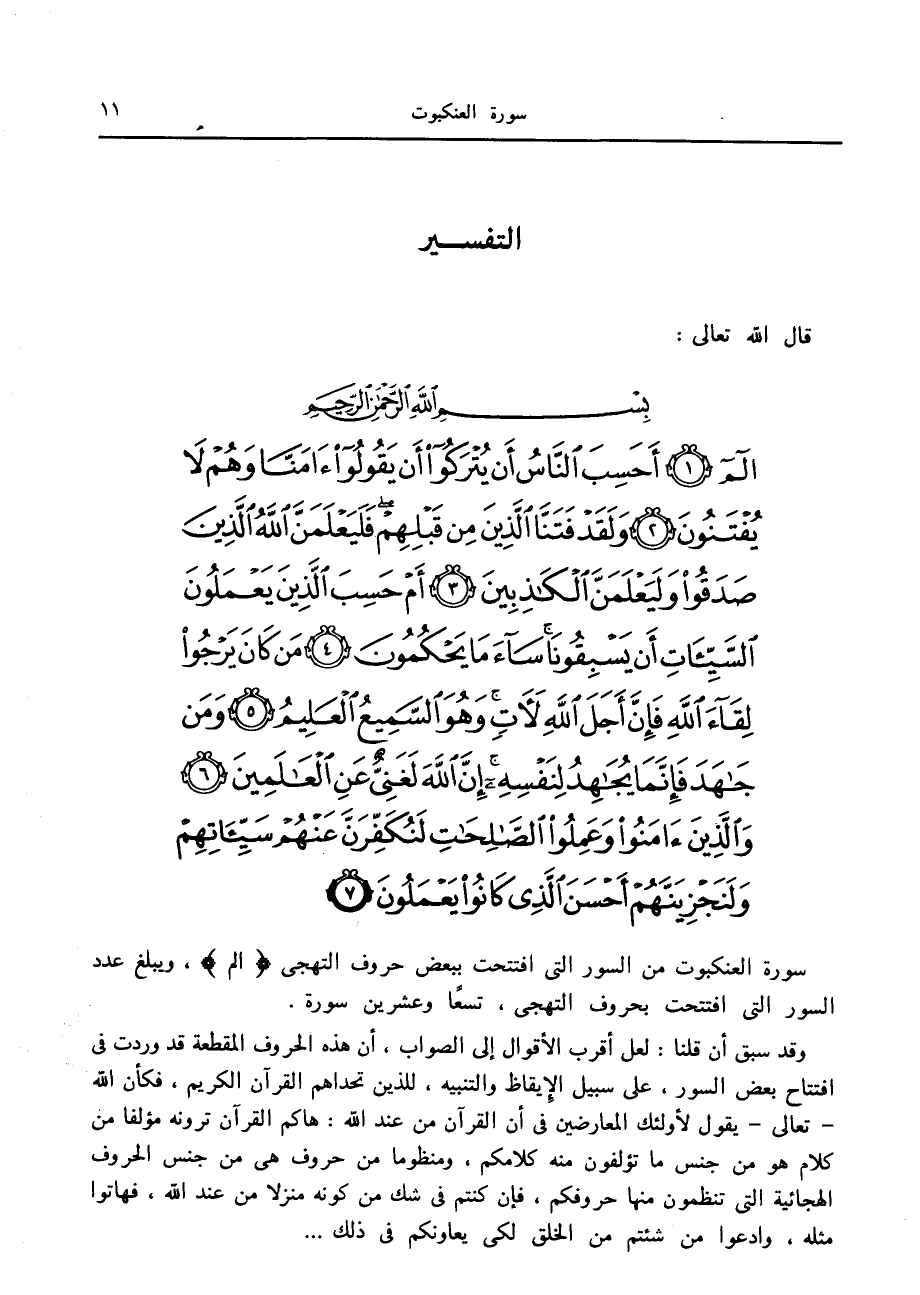 سورة العنكبوت ١١
التفسير
قال الله تعالى :
بِسْمِ ٱللَّهِ ٱلرَّحْمَٰنِ ٱلرَّحِيمِ
الٓمٓ ١ أَحَسِبَ ٱلنَّاسُ أَن يُتْرَكُوٓا۟ أَن يَقُولُوٓا۟ ءَامَنَّا وَهُمْ لَا
يُفْتَنُونَ ٢ وَلَقَدْ فَتَنَّا ٱلَّذِينَ مِن قَبْلِهِمْ ۖ فَلَيَعْلَمَنَّ ٱللَّهُ ٱلَّذِينَ
صَدَقُوا۟ وَلَيَعْلَمَنَّ ٱلْكَٰذِبِينَ ٣ أَمْ حَسِبَ ٱلَّذِينَ يَعْمَلُونَ
ٱلسَّيِّـَٔاتِ أَن يَسْبِقُونَا ۚ سَآءَ مَا يَحْكُمُونَ ٤ مَن كَانَ يَرْجُوا۟
لِقَآءَ ٱللَّهِ فَإِنَّ أَجَلَ ٱللَّهِ لَءَاتٍ ۚ وَهُوَ ٱلسَّمِيعُ ٱلْعَلِيمُ ٥ وَمَن
جَٰهَدَ فَإِنَّمَا يُجَٰهِدُ لِنَفْسِهِۦٓ ۚ إِنَّ ٱللَّهَ لَغَنِىٌّ عَنِ ٱلْعَٰلَمِينَ ٦
وَٱلَّذِينَ ءَامَنُوا۟ وَعَمِلُوا۟ ٱلصَّٰلِحَٰتِ لَنُكَفِّرَنَّ عَنْهُمْ سَيِّـَٔاتِهِمْ
وَلَنَجْزِيَنَّهُمْ أَحْسَنَ ٱلَّذِى كَانُوا۟ يَعْمَلُونَ ٧
سورة العنكبوت من السور التى افتتحت ببعض حروف التهجى ﴿ الم ﴾ ، ويبلغ عدد
السور التى افتتحت بحروف التهجى ، تسعًا وعشرين سورة .
وقد سبق أن قلنا : لعل أقرب الأقوال إلى الصواب ، أن هذه الحروف المقطعة قد وردت فى
افتتاح بعض السور ، على سبيل الإيقاظ والتنبيه ، للذين تحداهم القرآن الكريم ، فكأن الله
– تعالى – يقول لأولئك المعارضين فى أن القرآن من عند الله : هاكم القرآن ترونه مؤلفا من
كلام هو من جنس ما تؤلفون منه كلامكم ، ومنظوما من حروف هى من جنس الحروف
الهجائية التى تنظمون منها حروفكم ، فإن كنتم فى شك من كونه منزلا من عند الله ، فهاتوا
مثله ، وادعوا من شئتم من الخلق لكى يعاونكم فى ذلك ...